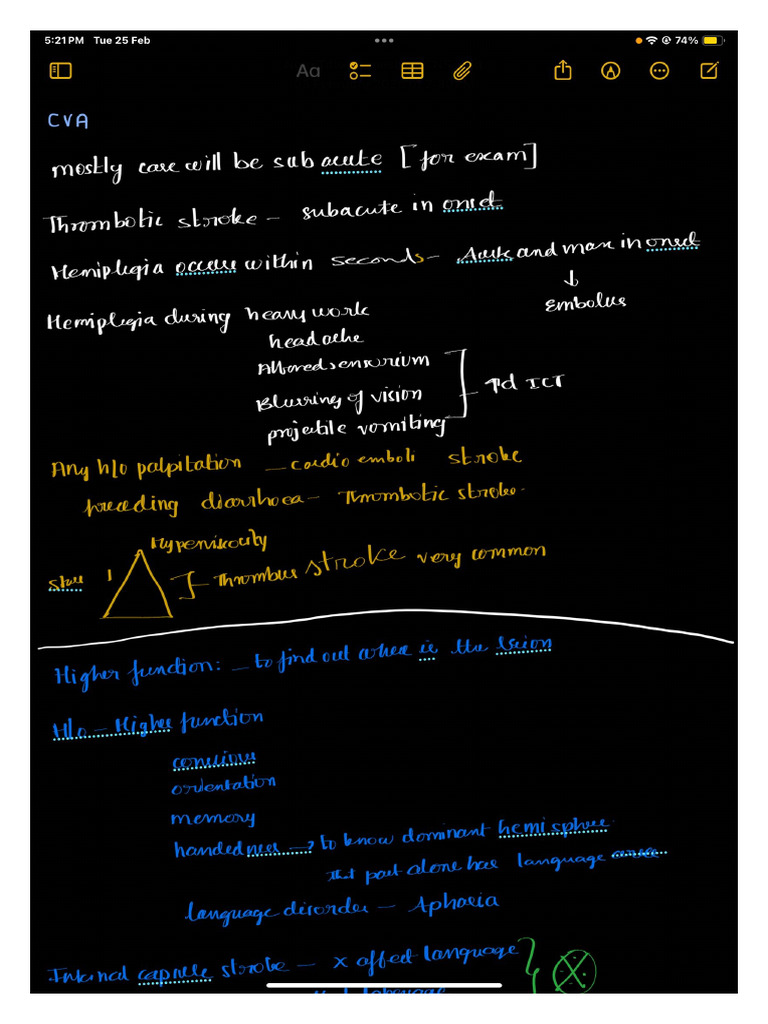 5:21 PM Tue 25 Feb
74%
Aa
CVA
mostly case will be sub acute [for exam]
Thrombotic stroke - subacute in onset
Hemiplegia occurs within seconds - Acute and max in onset
↓
Embolus
Hemiplegia during heavy work
headache
Altered sensorium
Blurring of vision
projectile vomiting
↑d ICT
Any h/o palpitation - cardio emboli stroke
preceding diarrhoea - Thrombotic stroke.
Hyperviscosity
Thrombus stroke very common
Higher function: - to find out where is the lesion
H/o - Higher function
conscious
orientation
memory
handedness → to know dominant hemisphere.
That part alone has language area
language disorder - Aphasia
Internal capsule stroke - x affect language